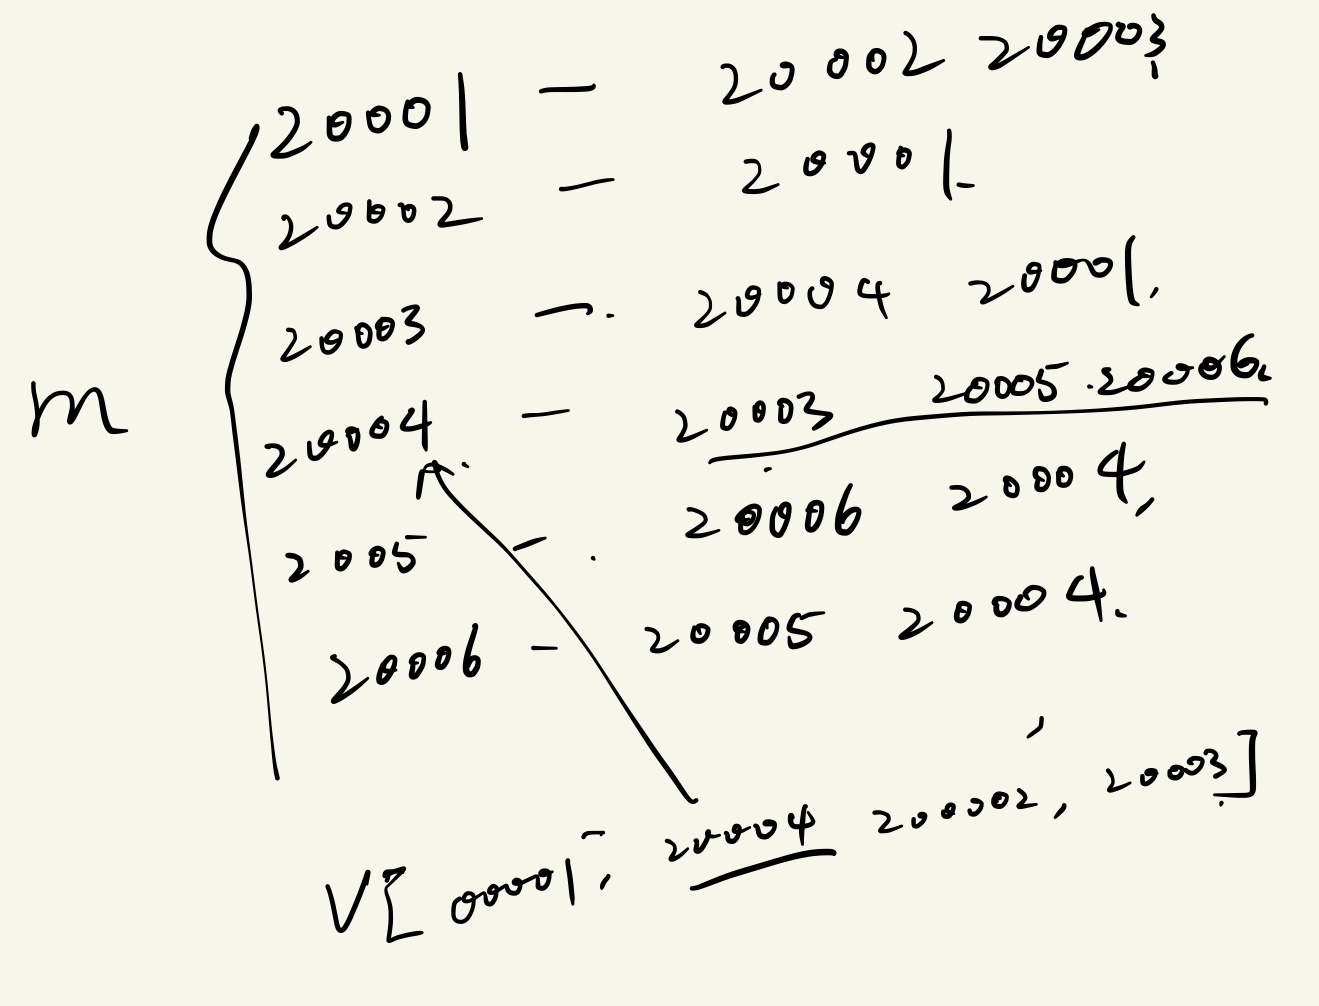 20001 - 20002 20003;
20002 - 20001
20003 - 20004 20001,
m
20004 - 20003 20005 20006
2005 - 20006 20004,
20006 - 20005 20004.
V[00001, 20004 200002, 20003]